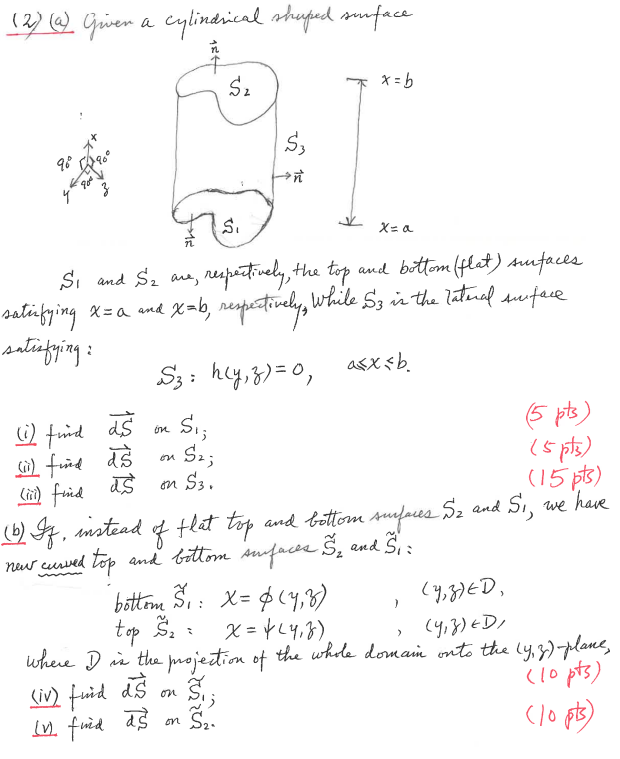 (2) (a) Given a cylindrical shaped surface
n⃗
S₂
x=b
S₃
x
90° 90°
90°
y z
n⃗
S₁
n⃗
x=a
S₁ and S₂ are, respectively, the top and bottom (flat) surfaces
satisfying x=a and x=b, respectively, while S₃ is the lateral surface
satisfying:
S₃: h(y,z)=0, a≤x≤b.
(i) find dS⃗ on S₁; (5 pts)
(ii) find dS⃗ on S₂; (5 pts)
(iii) find dS⃗ on S₃. (15 pts)
(b) If, instead of flat top and bottom surfaces S₂ and S₁, we have
new curved top and bottom surfaces S̃₂ and S̃₁:
bottom S̃₁: x=ϕ(y,z), (y,z)∈D,
top S̃₂: x=ψ(y,z), (y,z)∈D,
where D is the projection of the whole domain onto the (y,z)-plane,
(iv) find dS⃗ on S̃₁; (10 pts)
(v) find dS⃗ on S̃₂. (10 pts)